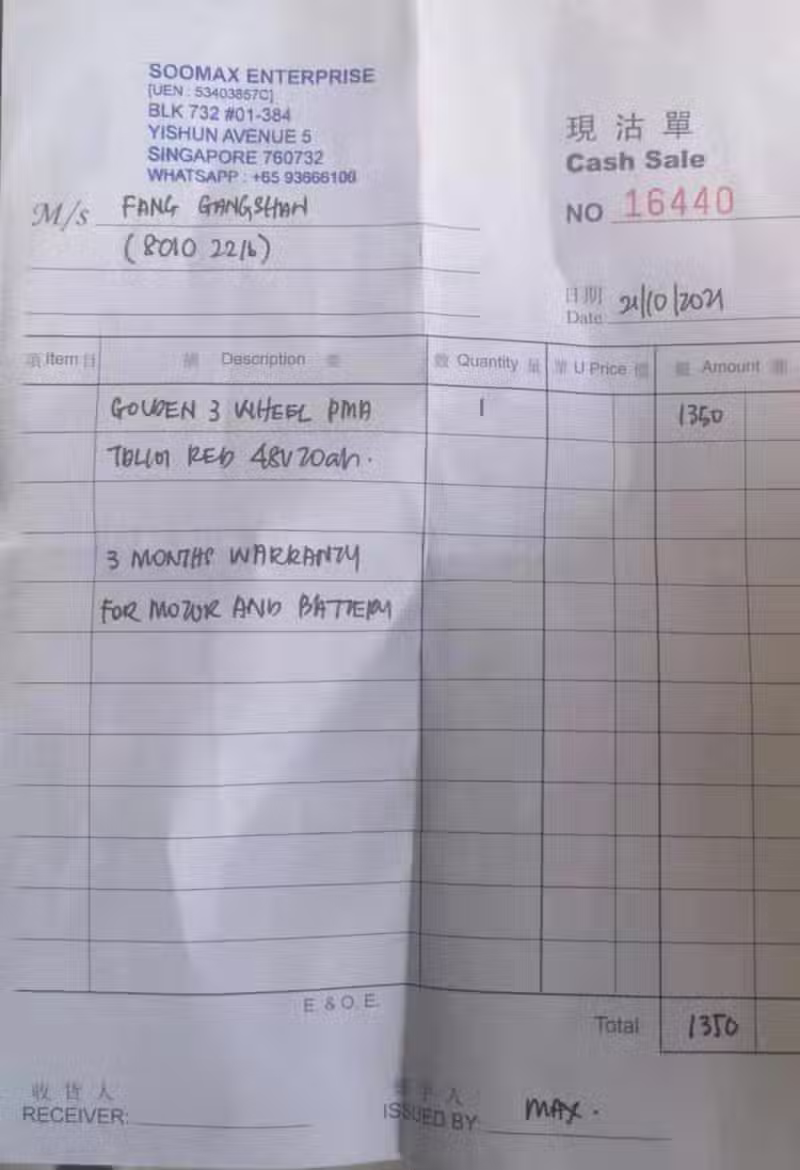 SOOMAX ENTERPRISE
[UEN : 53403857C]
BLK 732 #01-384
YISHUN AVENUE 5
SINGAPORE 760732
WHATSAPP : +65 93666100
現沽單
Cash Sale
NO 16440
M/s FANG GANGSHAN
(8010 2216)
日期
Date 21/10/2021
項 Item 目 Description 數 Quantity 量 單 U Price 價 Amount
GOLDEN 3 WHEEL PMA 1 1350
RED 48V 20ah.
3 MONTHS WARRANTY
FOR MOTOR AND BATTERY
E. & O. E.
Total 1350
收货人
RECEIVER:
ISSUED BY: MAX.